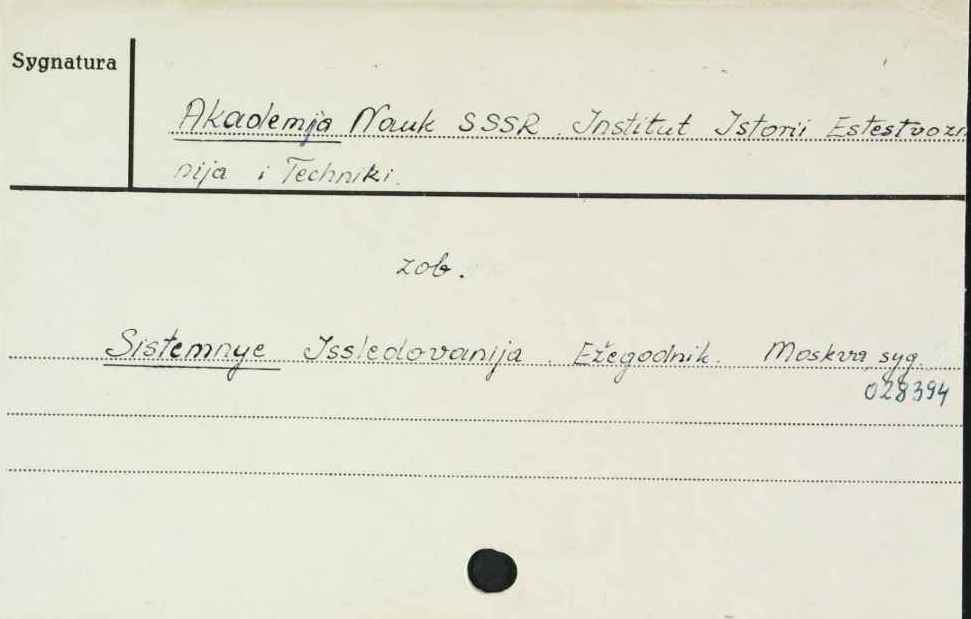 Sygnatura
Akademija Nauk SSSR. Institut Istorii Estestvozn
nija i Techniki.
zob.
Sistemnye Issledovanija. Ežegodnik. Moskva syg.
028394